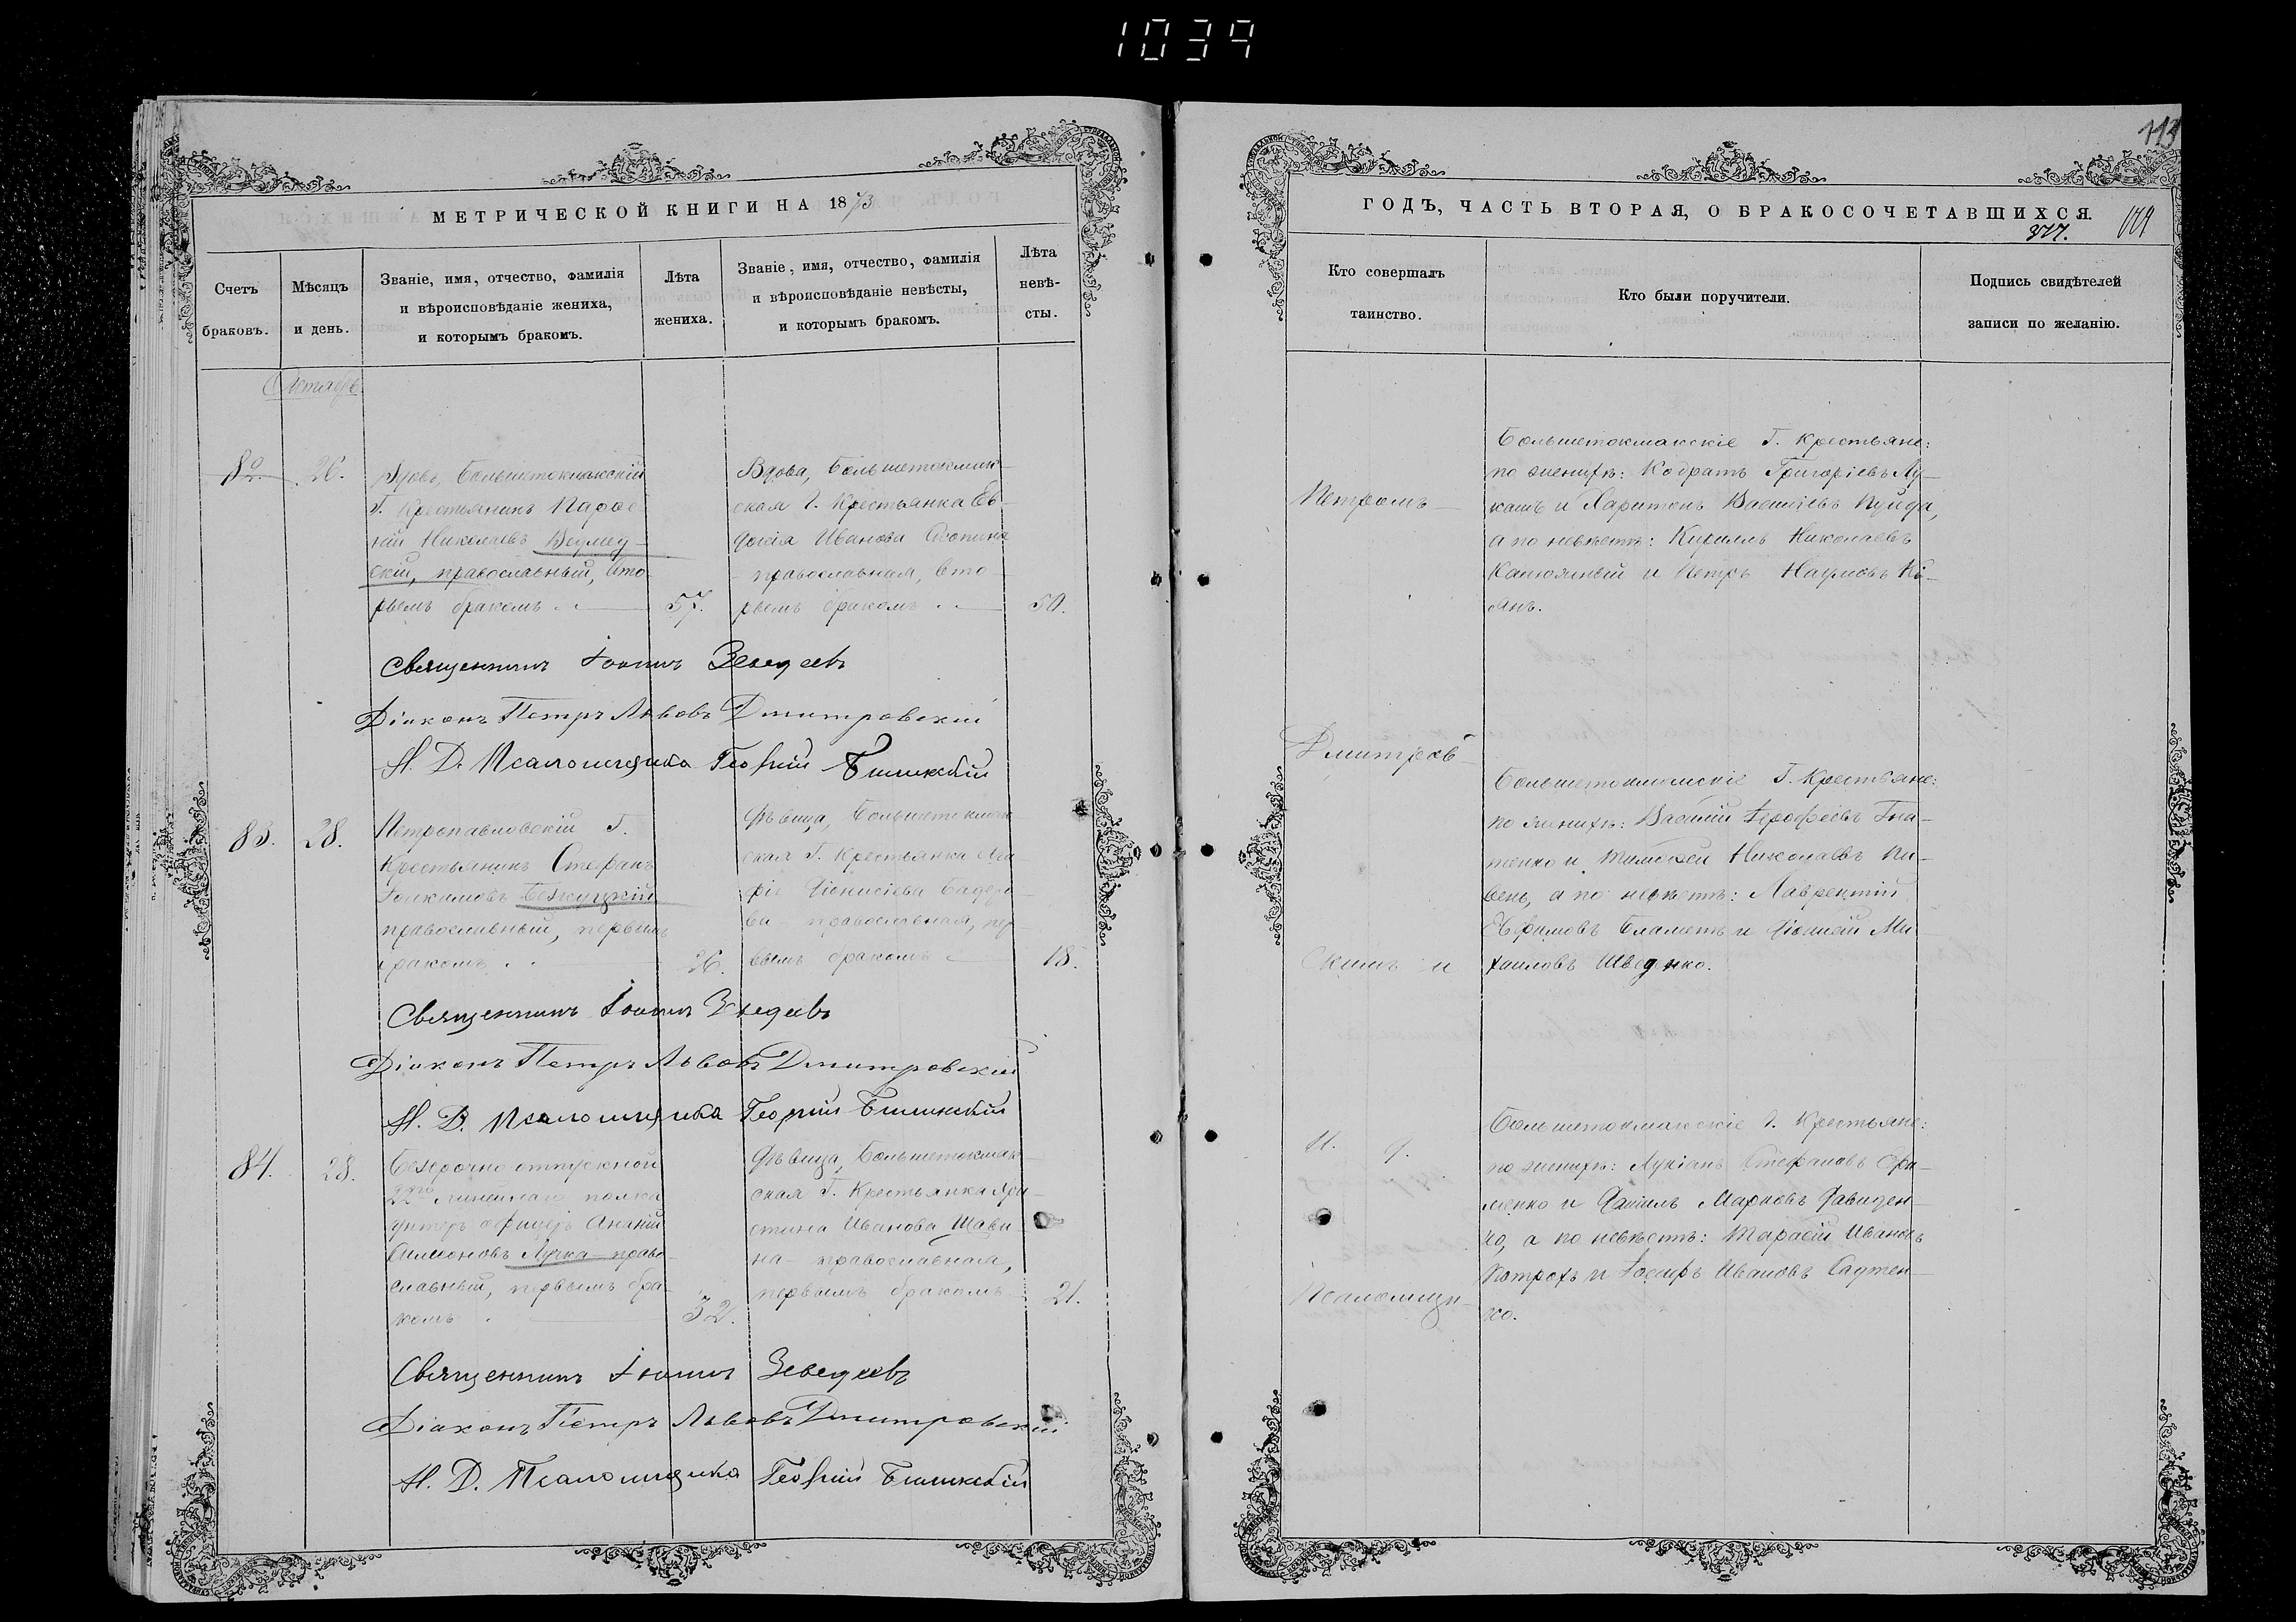 1039
113
МЕТРИЧЕСКОЙ КНИГИ НА 1873
Счетъ браковъ.
Мѣсяцъ и день.
Званіе, имя, отчество, фамилія
и вѣроисповѣданіе жениха,
и которымъ бракомъ.
Лѣта
жениха.
Званіе, имя, отчество, фамилія
и вѣроисповѣданіе невѣсты,
и которымъ бракомъ.
Лѣта
невѣ-
сты.
Октябрь
26.
Вдовъ, Большетокмакскій
Г. Крестьянинъ
Николаевъ
скій, православный, вто-
рымъ бракомъ
57.
Вдова, Большетокмак-
ская Г. Крестьянка Ев-
докія Иванова
православная, вто-
рымъ бракомъ
50.
Священникъ Іоаннъ Зеведеевъ
Діаконъ Петръ Львовъ Дмитровскій
И. Д. Псаломщика Георгій
83.
28.
Петропавловскій Г.
Крестьянинъ Стефанъ
Іоакимовъ
православный, первымъ
бракомъ
26.
Дѣвица, Большетокмак-
ская Г. Крестьянка Ага-
фія Діонисіева
ва православная, пер-
вымъ бракомъ
18.
Священникъ Іоаннъ Зеведеевъ
Діаконъ Петръ Львовъ Дмитровскій
И. Д. Псаломщика Георгій
84.
28.
Безсрочно отпускной
22го линейнаго полка
унтеръ офицеръ Ананій
Симеоновъ Лучка право-
славный, первымъ бра-
комъ
32.
Дѣвица, Большетокмак-
ская Г. Крестьянка Хри-
стина Иванова Шави-
на православная,
первымъ бракомъ
21.
Священникъ Іоаннъ Зеведеевъ
Діаконъ Петръ Львовъ Дмитровскій
И. Д. Псаломщика Георгій
ГОДЪ, ЧАСТЬ ВТОРАЯ, О БРАКОСОЧЕТАВШИХСЯ.
377.
Кто совершалъ
таинство.
Кто были поручители.
Подпись свидѣтелей
записи по желанію.
Петромъ
Большетокмакскіе Г. Крестьяне:
по женихѣ: Кодратъ Григоріевъ Лу-
кашъ и Харитонъ Васильевъ
а по невѣстѣ: Кириллъ Николаевъ
и Петръ Наумовъ Кі-
янъ.
Дмитров-
скимъ и
Большетокмакскіе Г. Крестьяне:
по женихѣ: Василій Іерофеевъ Гна-
тенко и Тимофей Николаевъ Пи-
вень, а по невѣстѣ: Лаврентій
Ефимовъ и Діонисій Ми-
хаиловъ Шведенко.
И. д.
Псаломщи-
Большетокмакскіе Г. Крестьяне:
по женихѣ: Лукіанъ Стефановъ
менко и Даніилъ Марковъ Давиден-
ко, а по невѣстѣ: Тарасій Ивановъ
Потрохъ и Іосифъ Ивановъ
ко.